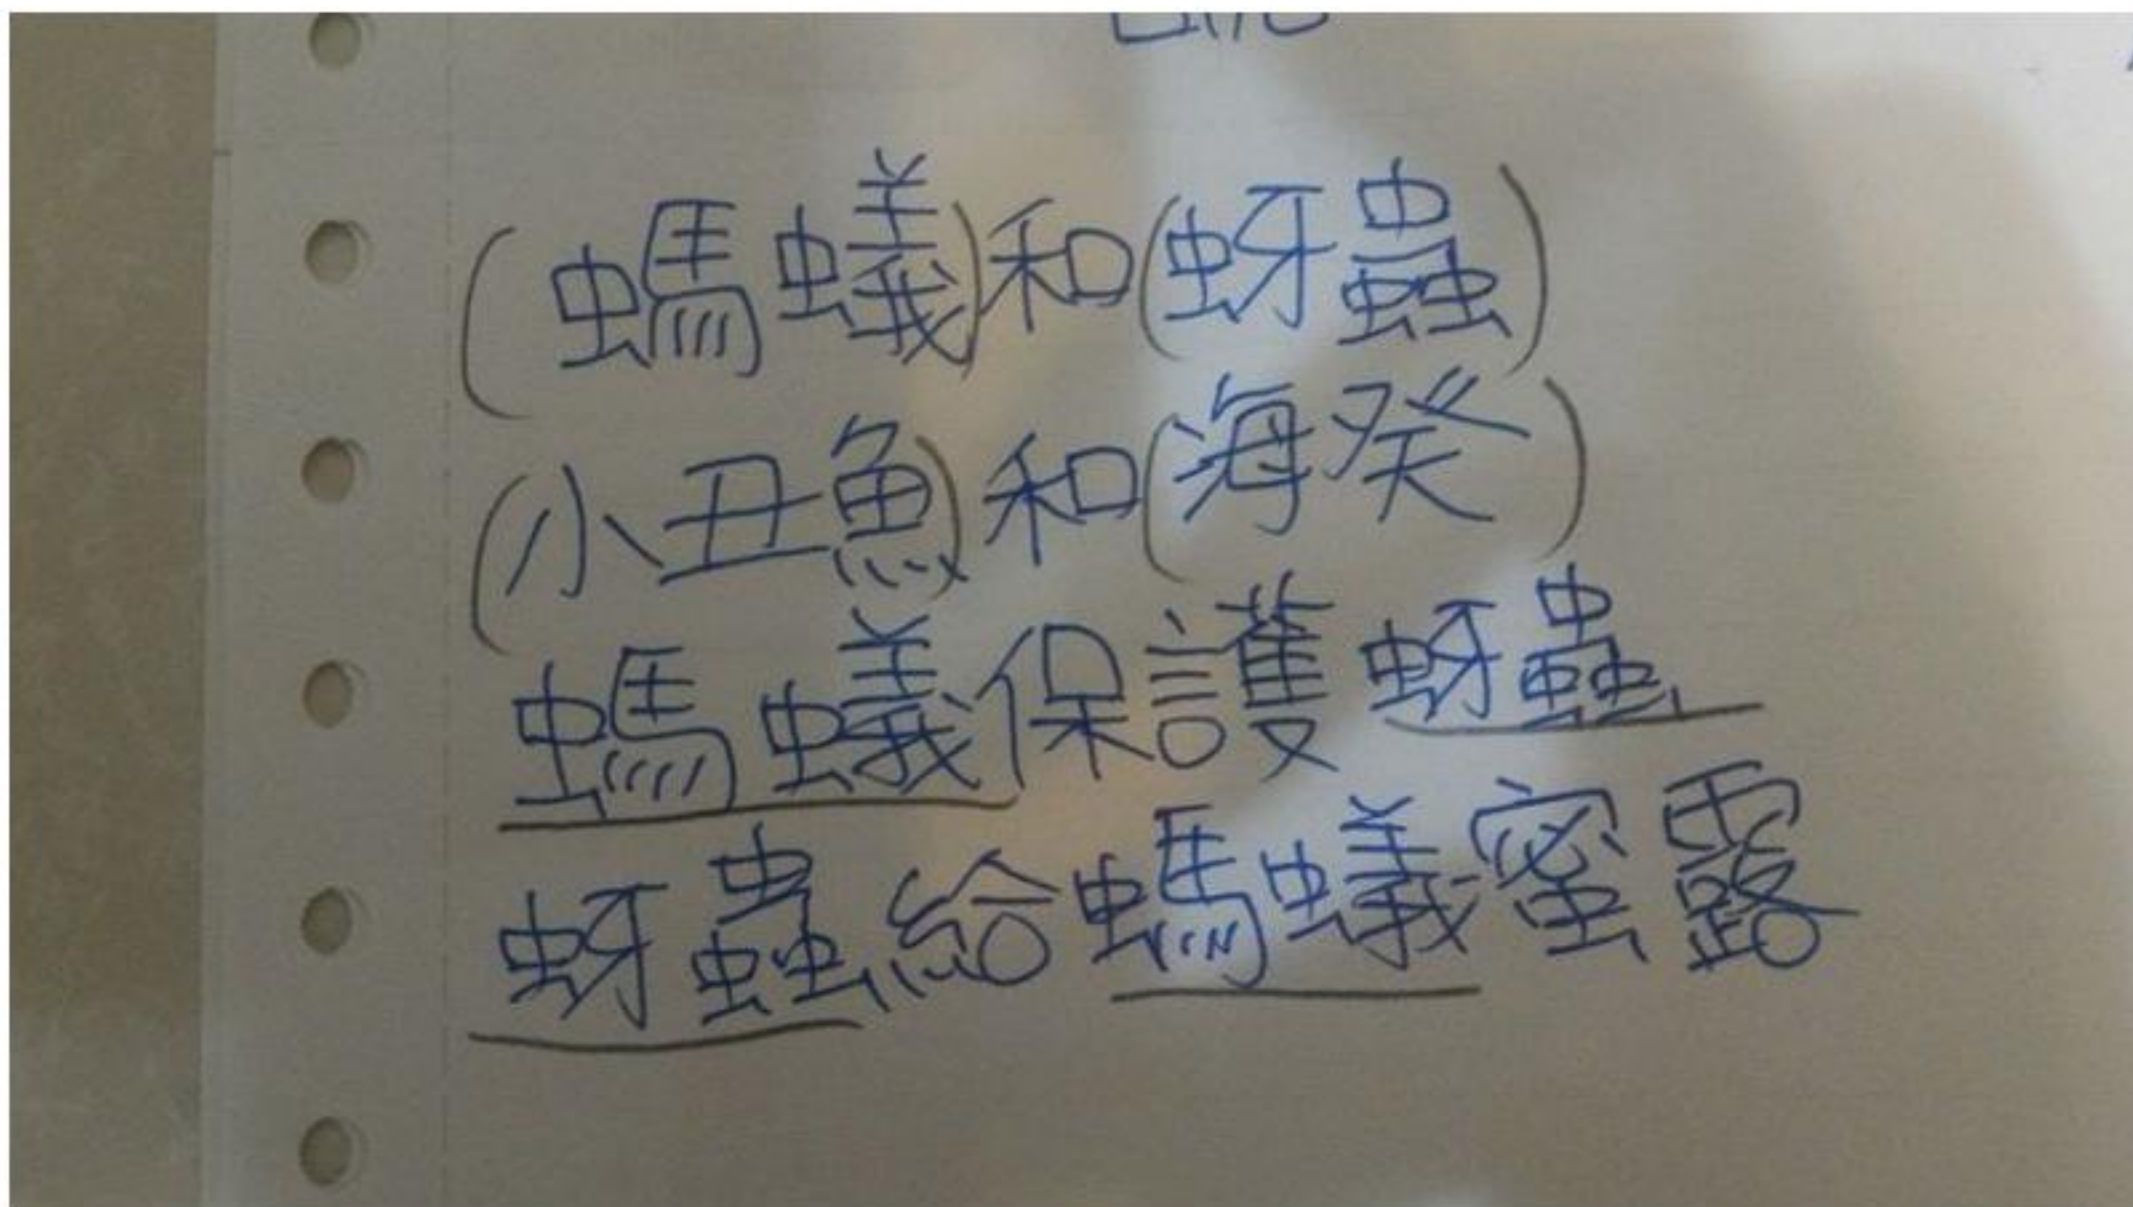 (螞蟻)和(蚜蟲)
(小丑魚)和(海癸)
螞蟻保護蚜蟲
蚜蟲給螞蟻蜜露